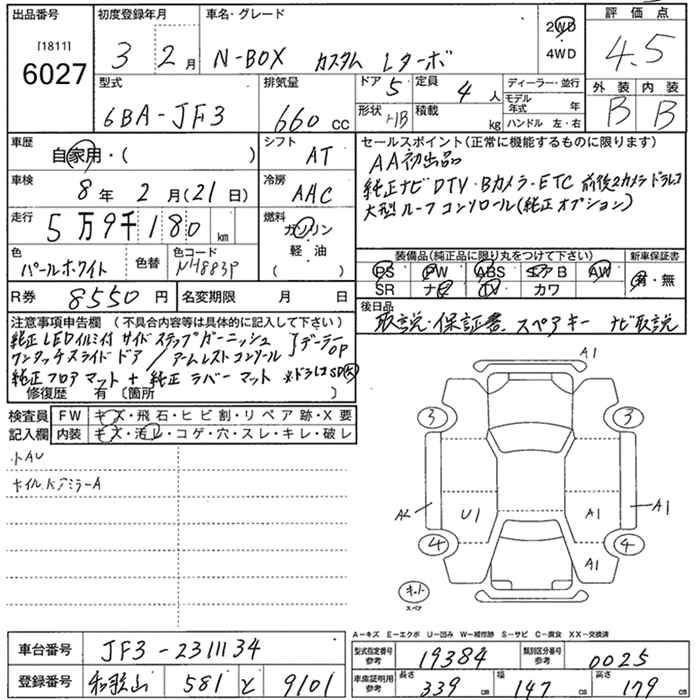 出品番号
[1811]
6027
初度登録年月
3 2月
車名・グレード
N-BOX カスタム Lターボ
2WD
・
4WD
評価点
4.5
型式
6BA-JF3
排気量
660 CC
ドア 5
定員 4 人
形状 HB
積載 kg
ディーラー・並行
モデル年式 年
ハンドル 左・右
外装 内装
B B
車歴
自家用・( )
シフト
AT
車検
8年 2月(21日)
冷房
AAC
走行
5万9千180 km
燃料
ガソリン
軽・油
( )
色
パールホワイト
色替
色コード
NH883P
R券 8550 円
名変期限 月 日
セールスポイント(正常に機能するものに限ります)
AA初出品
純正ナビ DTV・Bカメラ・ETC 前後2カメラドラレコ
大型ルーフコンソール(純正オプション)
装備品(純正品に限り丸をつけて下さい)
PS PW ABS エアB AW
SR ナビ TV カワ
新車保証書
有・無
後日品
取説・保証書 スペアキー ナビ取説
注意事項申告欄 (不具合内容等は具体的に記入して下さい)
純正LEDイルミ付サイドステップガーニッシュ
ワンタッチスライドドア/アームレストコンソール } ディーラーOP
純正フロアマット+純正ラバーマット ※ドラレコSD欠
修復歴 有 〔箇所 〕
検査員 FW キズ・飛石・ヒビ割・リペア跡・X要
記入欄 内装 キズ・汚レ・コゲ・穴・スレ・キレ・破レ
小AU
A1
3 3
A2 U1 A1 A1
4 4
A1
キット
スペア
A-キズ E-エクボ U-凹み W-補修跡 S-サビ C-腐食 XX-交換済
車台番号 JF3-2311134
登録番号 和歌山 581 と 9101
型式指定番号 参考 19384
類別区分番号 参考 0025
車庫証明用 参考 長さ 339 cm 幅 147 cm 高さ 179 cm